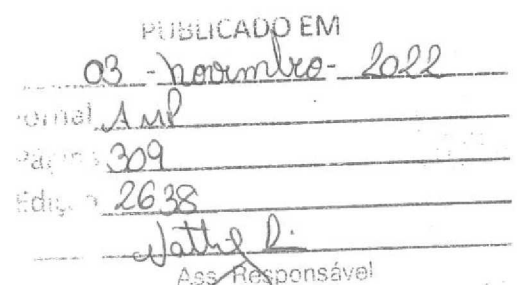 PUBLICADO EM
03 - novembro - 2022
Jornal AMP
Página 309
Edição 2638
Ass. Responsável